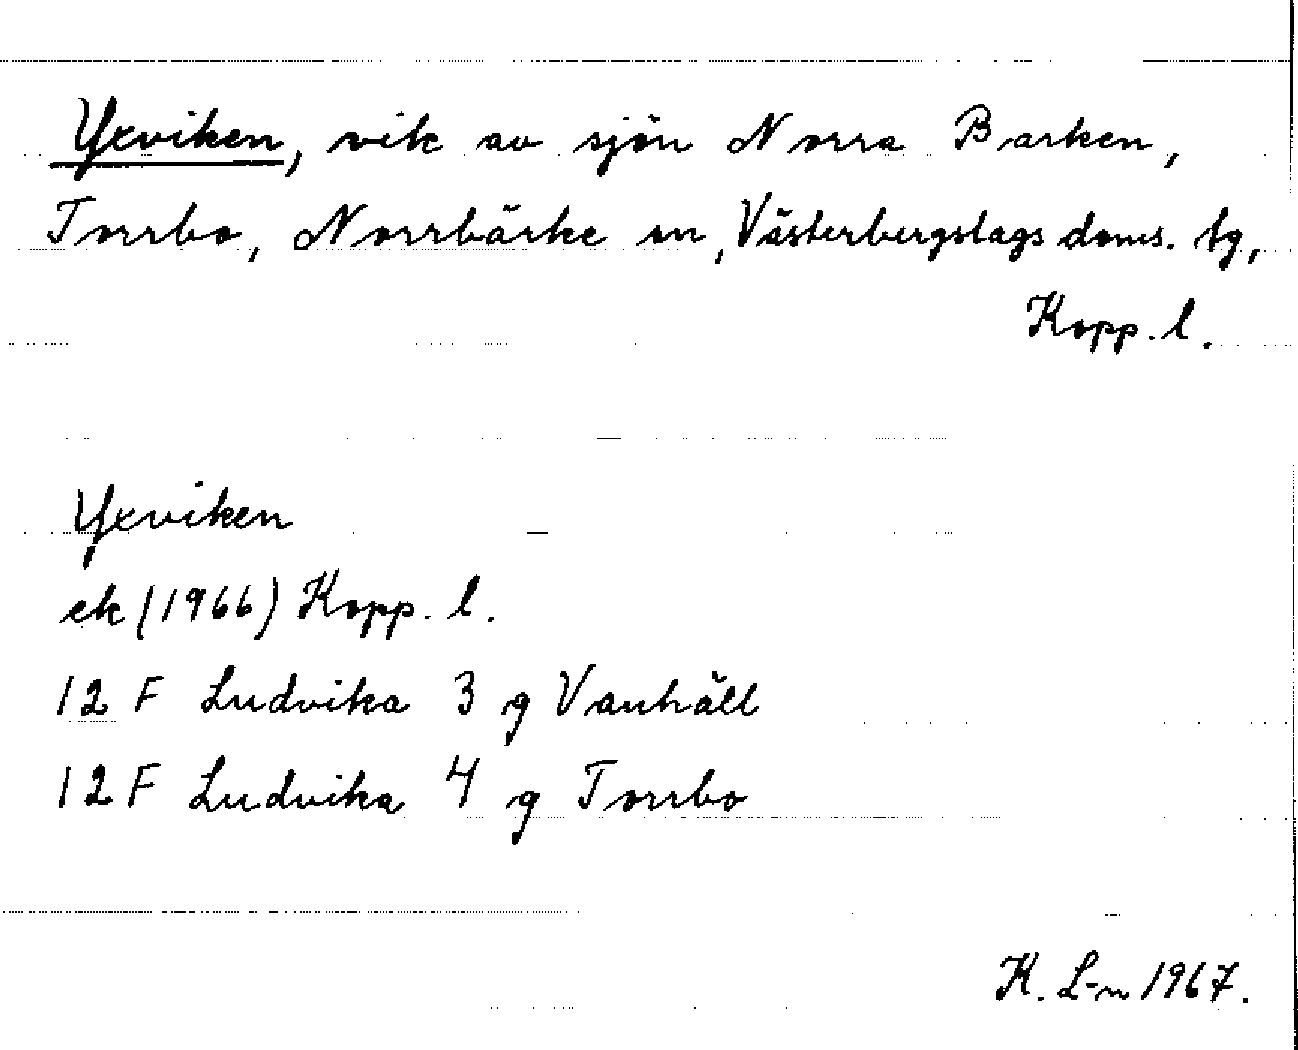 Yxviken, vik av sjön Norra Barken,
Torrbo, Norrbärke sn, Västerbergslags doms. tg,
Kopp. l.
Yxviken
ek (1966) Kopp. l.
12 F Ludvika 3 g Vanhäll
12 F Ludvika 4 g Torrbo
K. L-n 1967.